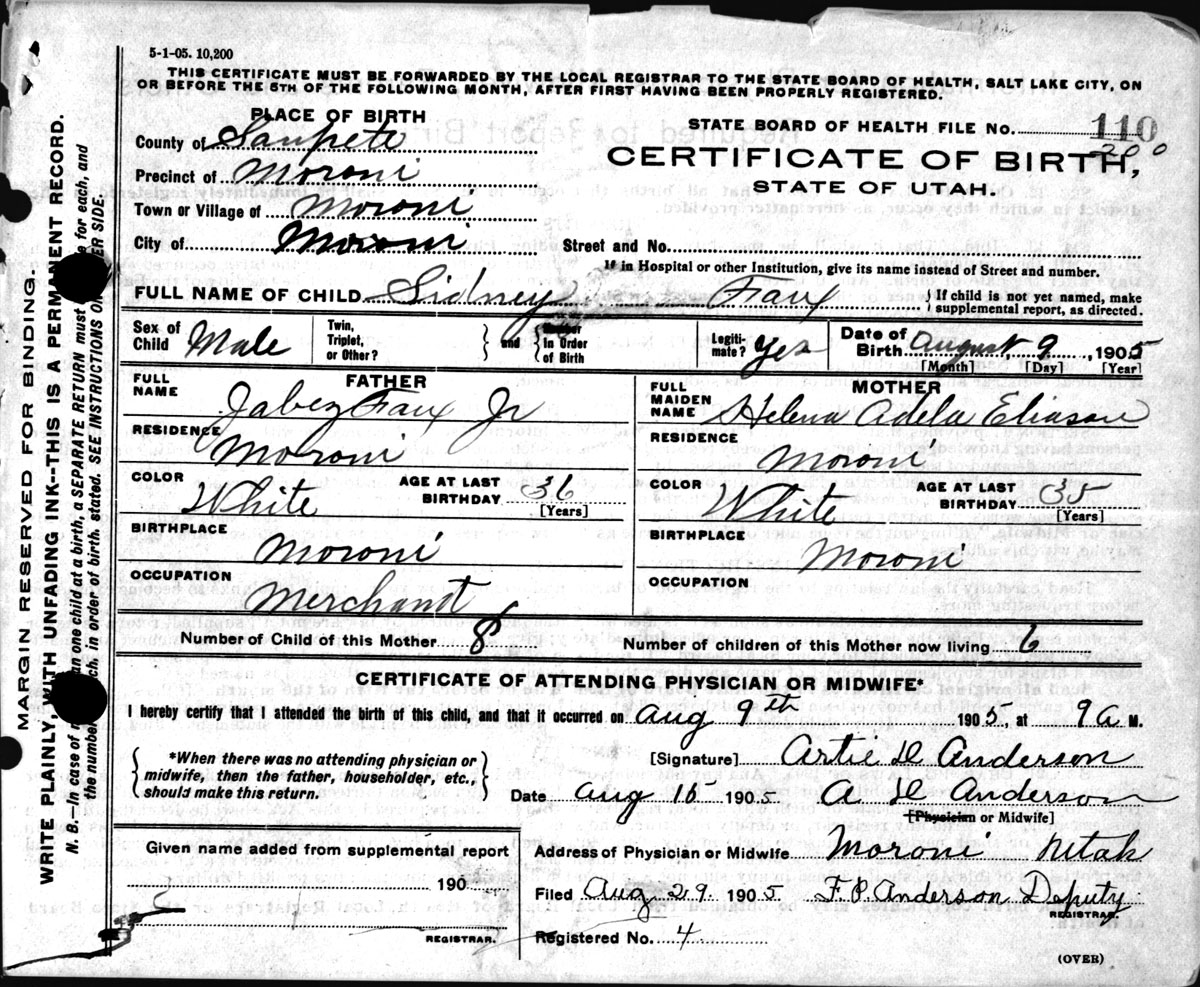 5-1-05. 10,200
THIS CERTIFICATE MUST BE FORWARDED BY THE LOCAL REGISTRAR TO THE STATE BOARD OF HEALTH, SALT LAKE CITY, ON
OR BEFORE THE 5TH OF THE FOLLOWING MONTH, AFTER FIRST HAVING BEEN PROPERLY REGISTERED.
PLACE OF BIRTH
County of Sanpete
Precinct of Moroni
Town or Village of Moroni
City of Moroni
STATE BOARD OF HEALTH FILE No. 110
200
CERTIFICATE OF BIRTH,
STATE OF UTAH.
Street and No.
If in Hospital or other Institution, give its name instead of Street and number.
FULL NAME OF CHILD Sidney Faux
If child is not yet named, make
supplemental report, as directed.
Sex of
Child Male
Twin,
Triplet,
or Other?
and
Number
in Order
of Birth
Legiti-
mate? Yes
Date of
Birth August 9, 1905
[Month] [Day] [Year]
FATHER
FULL
NAME Jabez Faux Jr
RESIDENCE
Moroni
COLOR
White
AGE AT LAST
BIRTHDAY 36
[Years]
BIRTHPLACE
Moroni
OCCUPATION
Merchant
MOTHER
FULL
MAIDEN
NAME Helena Adela Eliason
RESIDENCE
Moroni
COLOR
White
AGE AT LAST
BIRTHDAY 35
[Years]
BIRTHPLACE
Moroni
OCCUPATION
Number of Child of this Mother 8
Number of children of this Mother now living 6
CERTIFICATE OF ATTENDING PHYSICIAN OR MIDWIFE*
I hereby certify that I attended the birth of this child, and that it occurred on Aug 9th 1905, at 9 A M.
*When there was no attending physician or
midwife, then the father, householder, etc.,
should make this return.
[Signature] Artie D Anderson
Date Aug 15 1905 A D Anderson
[Physician or Midwife]
Given name added from supplemental report
190
REGISTRAR.
Address of Physician or Midwife Moroni Utah
Filed Aug 29 1905 F. P. Anderson Deputy
REGISTRAR.
Registered No. 4
(OVER)
MARGIN RESERVED FOR BINDING.
WRITE PLAINLY, WITH UNFADING INK--THIS IS A PERMANENT RECORD.
N. B.—In case of than one child at a birth, a SEPARATE RETURN must for each, and
the number in order of birth, stated. SEE INSTRUCTIONS SIDE.